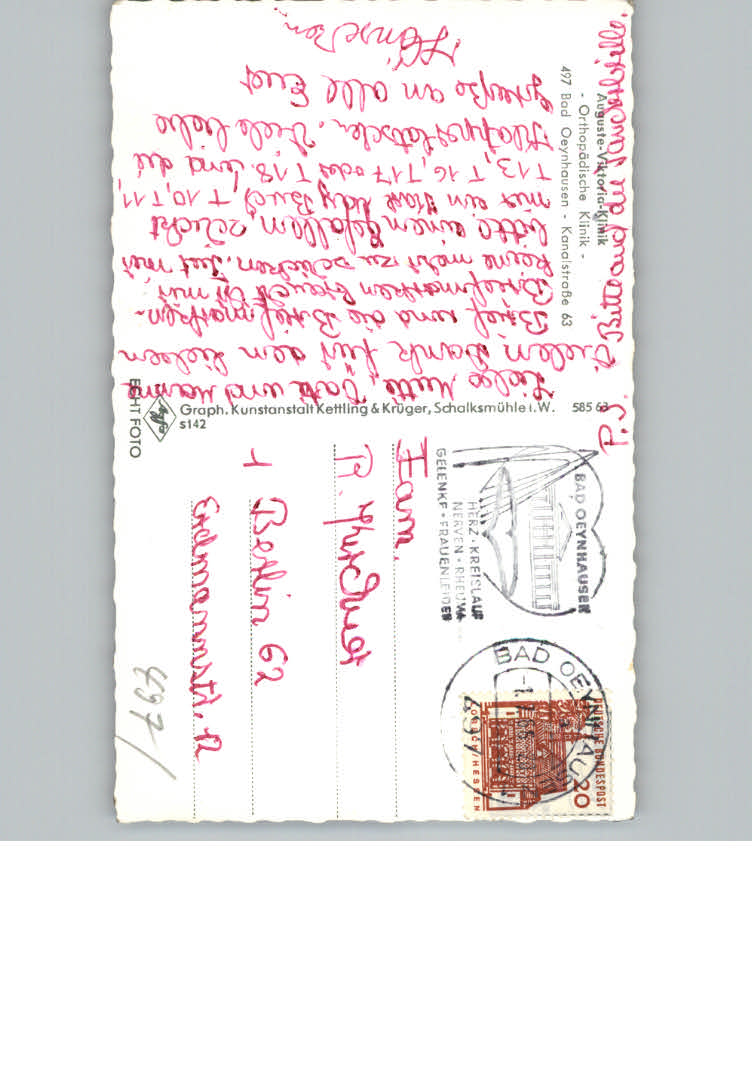 Auguste-Viktoria-Klinik
- Orthopädische Klinik -
497 Bad Oeynhausen - Kanalstraße 63
Liebe Mutti, Vati und Hanne
Vielen Dank für den lieben
Brief und die Briefmarken.
Briefmarken braucht Ihr mir
keine mehr zu schicken. Tut mir
bitte einen Gefallen, schickt
mir ein Buch T 10, T 11,
T 13, T 16, T 17 oder T 18. Und die
Klapperlatschen. Viele liebe
Grüße an alle Eure
P.S. Bitte auch die
Graph. Kunstanstalt Kettling & Krüger, Schalksmühle i.W. 585 63
S142
Agfa
ECHT FOTO
Fam.
R.
1 Berlin 62
Erdmannstr. 12
497/
BAD OEYNHAUSEN
HERZ · KREISLAUF
NERVEN · RHEUMA
GELENKE · FRAUENLEIDEN
BAD OEYNHAUSEN
497
DEUTSCHE BUNDESPOST
20
LORSCH/HESSEN